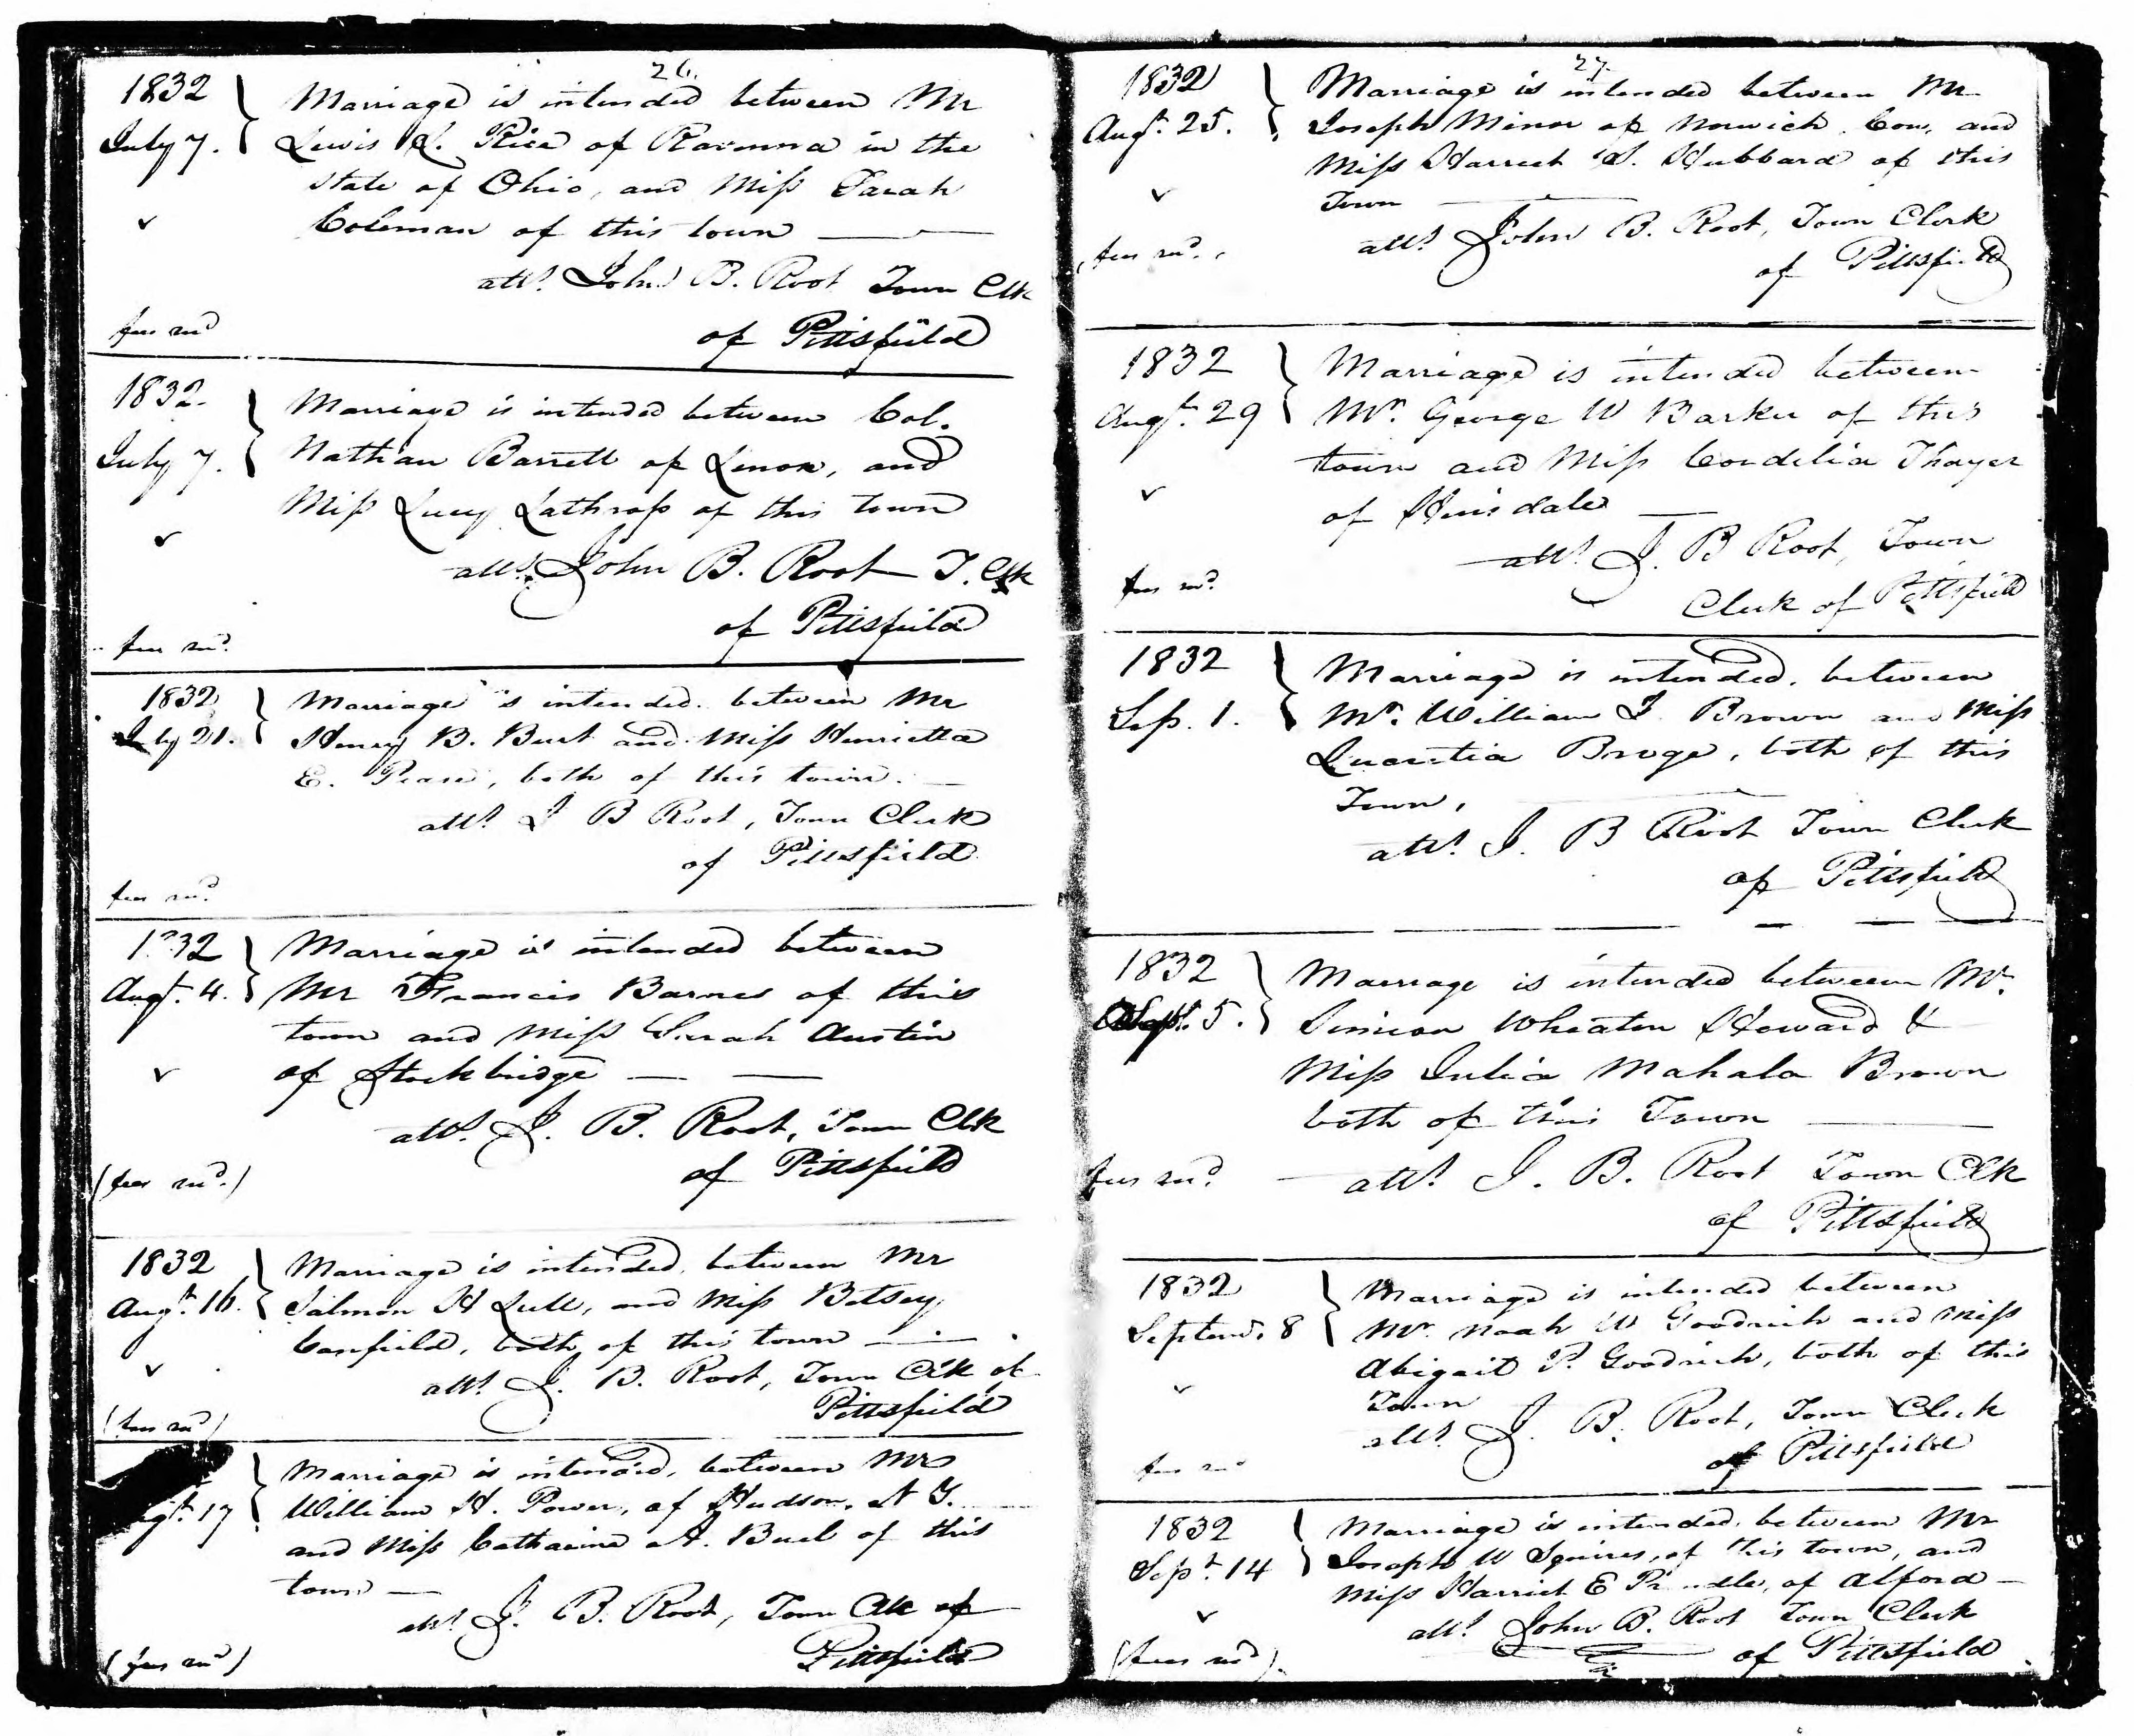 26.
1832
July 7.
Marriage is intended between Mr
Lewis L. Rice of Ravenna in the
State of Ohio, and Miss Sarah
Coleman of this town
att. John B. Root Town Clk
of Pittsfield
fees recd
1832.
July 7.
Marriage is intended between Col.
Nathan Barrett of Lenox, and
Miss Lucy Lathrop of this town
att. John B. Root T. Clk
of Pittsfield
fees recd.
1832
July 21.
Marriage is intended. between Mr
Henry B. Burt and Miss Henrietta
E. Pease, both of this town.
att. J B Root, Town Clerk
of Pittsfield
fees recd.
1832
Augt. 4.
Marriage is intended between
Mr Francis Barnes of this
town and Miss Sarah Austin
of Stockbridge
att. J. B. Root, Town Clk
of Pittsfield
(fees recd.)
1832
Augt. 16.
Marriage is intended, between Mr
Salmon H Lull, and Miss Betsey
Canfield, both of this town
att. J. B. Root, Town Clk of
Pittsfield
(fees recd)
Augt. 17
Marriage is intended, between Mr
William H. Power, of Hudson, N Y.
and Miss Catharine A. Buel of this
town
att. J. B. Root, Town Clk of
Pittsfield
(fees recd)
27.
1832
Augt. 25.
Marriage is intended between Mr
Joseph Minor of Norwich, Con, and
Miss Harriet S. Hubbard of this
Town
att. John B. Root, Town Clerk
of Pittsfield
fees recd.
1832
Augt. 29
Marriage is intended between
Mr. George W Barker of this
town and Miss Cordelia Thayer
of Hinsdale
att. J. B Root, Town
Clerk of Pittsfield
fees recd.
1832
Sep. 1.
Marriage is intended, between
Mr. William J. Brown and Miss
both of this
Town,
att. J. B Root Town Clerk
of Pittsfield
1832
Sept. 5.
Marriage is intended between Mr.
Simeon Wheaton Howard &
Miss Julia Mahala Brown
both of this Town
att. J. B. Root Town Clk
of Pittsfield
fees recd.
1832
Septemr. 8
Marriage is intended between
Mr. Noah W Goodrich and Miss
Abigail P. Goodrich, both of this
Town
att. J. B. Root, Town Clerk
of Pittsfield
fees recd
1832
Sept. 14
Marriage is intended, between Mr
Joseph W Squires, of this town, and
Miss Harriet E of Alford
att. John B. Root Town Clerk
of Pittsfield
(fees recd).